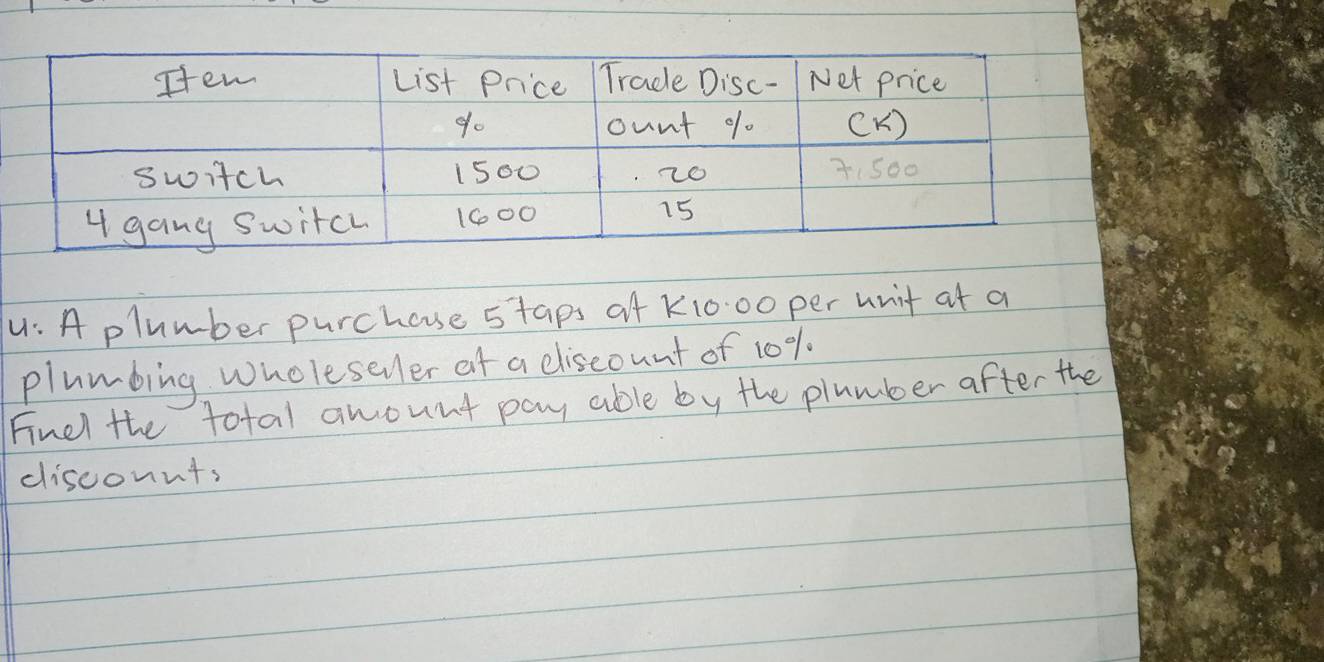 Item | List Price | Trade Disc- | Net price
% | ount % | (K)
Switch | 1500 | . 20 | 7,500
4 gang Switch | 1600 | 15
4. A plumber purchase 5 taps at K10.00 per unit at a
plumbing wholeseller at a discount of 10%.
Find the total amount pay able by the plumber after the
discount.